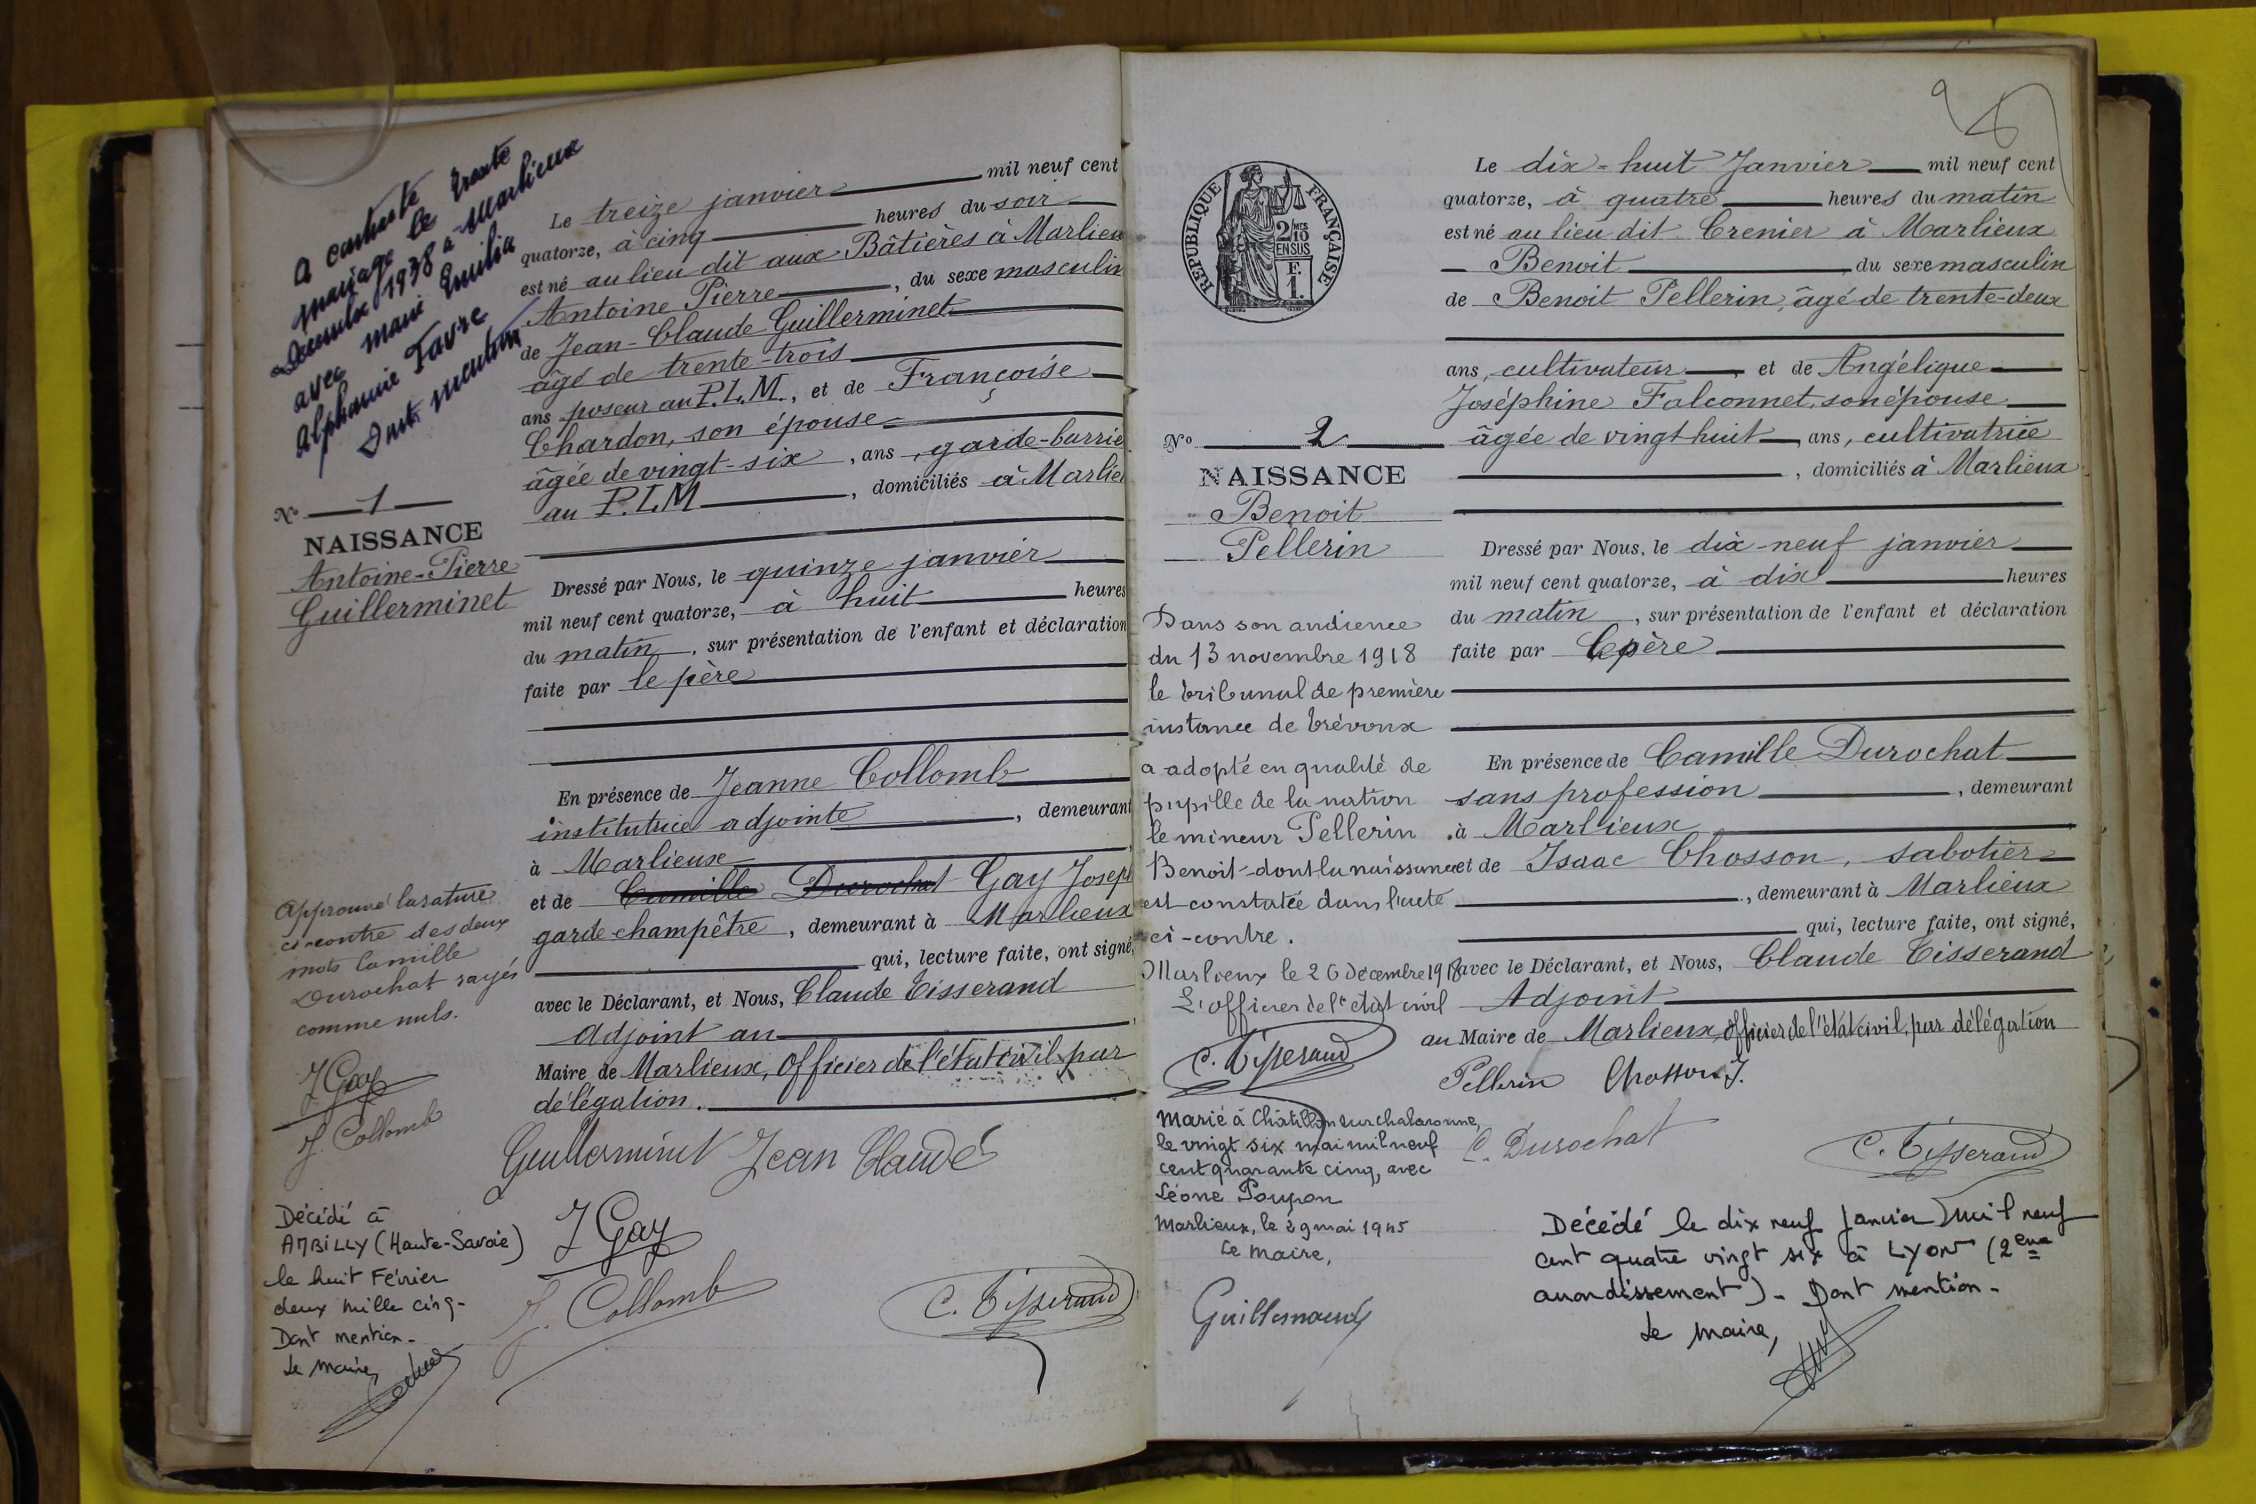 A contracté
mariage le trente
Décembre 1938 à Marlieux
avec Marie Emilia
Alphonsine Favre
Dont mention
N° 1
NAISSANCE
Antoine-Pierre
Guillerminet
Approuvé la rature
ci-contre des deux
mots Camille
Durochat rayés
comme nuls.
J. Gay
J. Collomb
Décédé à
AMBILLY (Haute-Savoie)
le huit Février
deux mille cinq-
Dont mention-
Le Maire,
Le treize janvier mil neuf cent
quatorze, à cinq heures du soir
est né au lieu dit aux Bâtières à Marlieu
Antoine Pierre, du sexe masculin
de Jean-Claude Guillerminet
âgé de trente-trois
ans poseur au P.L.M., et de Françoise
Chardon, son épouse
âgée de vingt-six, ans, garde-barriè
au P.L.M, domiciliés à Marlieu
Dressé par Nous, le quinze janvier
mil neuf cent quatorze, à huit heures
du matin, sur présentation de l'enfant et déclaration
faite par le père
En présence de Jeanne Collomb
institutrice adjointe, demeurant
à Marlieux
et de Camille Durochat Gay Joseph
garde-champêtre, demeurant à Marlieux
qui, lecture faite, ont signé,
avec le Déclarant, et Nous, Claude Tisserand
adjoint au
Maire de Marlieux, Officier de l'état civil par
délégation.
Guillerminet Jean Claude
J Gay
J. Collomb
C. Tisserand
RÉPUBLIQUE FRANÇAISE
2/10MES
EN SUS
F.
1
N° 2
NAISSANCE
Benoit
Pellerin
Dans son audience
du 13 novembre 1918
le tribunal de première
instance de trévoux
a adopté en qualité de
pupille de la nation
le mineur Pellerin
Benoit-dont la naissance
est constatée dans l'acte
ci-contre.
Marlieux le 26 Décembre 1918
L'officier de l'état civil
C. Tisserand
Marié à Châtillon sur Chalaronne,
le vingt six mai mil neuf
cent quarante cinq, avec
Léone Poupon
Marlieux, le 29 mai 1945
Le Maire,
Le dix-huit Janvier mil neuf cent
quatorze, à quatre heures du matin
est né au lieu dit Crenier à Marlieux
Benoit, du sexe masculin
de Benoit Pellerin, âgé de trente-deux
ans, cultivateur, et de Angélique
Joséphine Falconnet, son épouse
âgée de vingt huit, ans, cultivatrice
, domiciliés à Marlieux
Dressé par Nous, le dix-neuf janvier
mil neuf cent quatorze, à dix heures
du matin, sur présentation de l'enfant et déclaration
faite par Le père
En présence de Camille Durochat
sans profession, demeurant
à Marlieux
et de Isaac Chosson, sabotier
, demeurant à Marlieux
qui, lecture faite, ont signé,
avec le Déclarant, et Nous, Claude Tisserand
Adjoint
au Maire de Marlieux, Officier de l'état civil, par délégation
Pellerin Chosson J.
C. Durochat
C. Tisserand
Décédé le dix neuf janvier mil neuf
cent quatre vingt six à Lyon (2ème
arrondissement). Dont mention-
Le Maire,